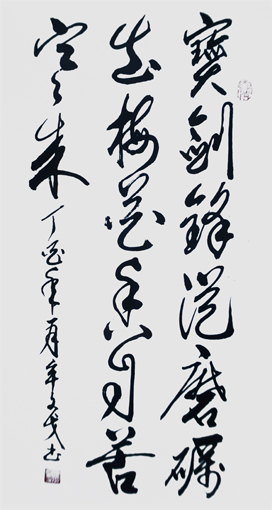 寶劍鋒從磨礪
出梅花香自苦
寒来
丁酉年